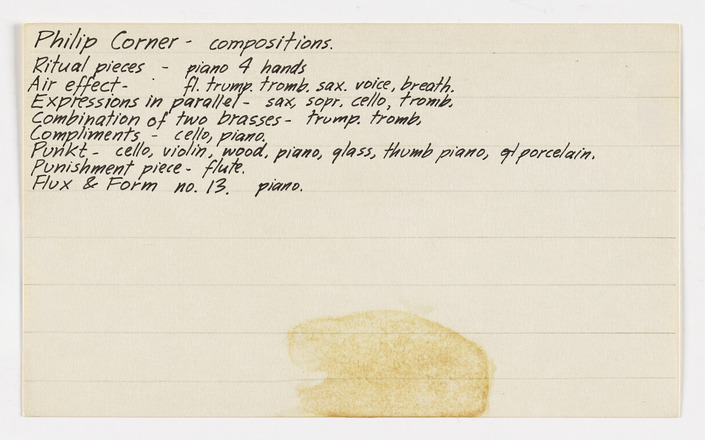 Philip Corner - compositions.
Ritual pieces - piano 4 hands
Air effect- fl. trump. tromb. sax. voice, breath.
Expressions in parallel - sax, sopr. cello, tromb.
Combination of two brasses - trump. tromb.
Compliments - cello, piano.
Punkt - cello, violin, wood, piano, glass, thumb piano, porcelain.
Punishment piece - flute.
Flux & Form no. 13. piano.